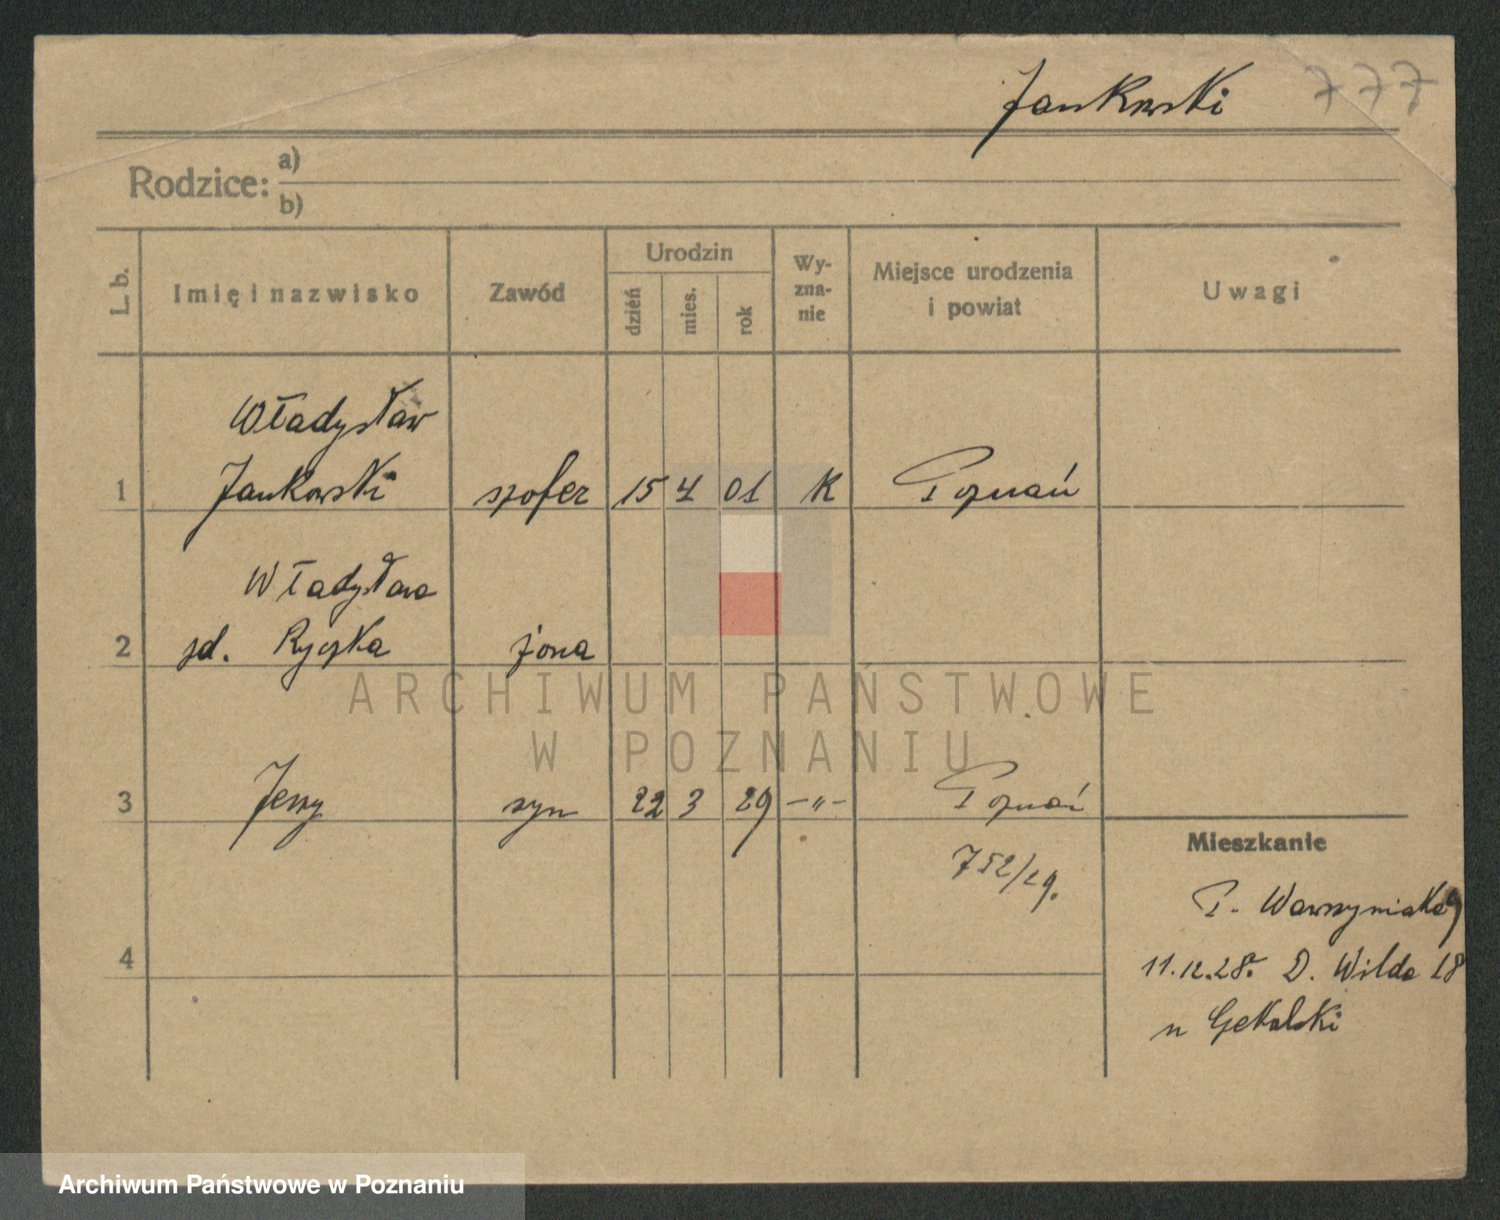 Jankowski 777
Rodzice: a)
b)
L. b. Imię i nazwisko Zawód Urodzin dzień mies. rok Wy-zna-nie Miejsce urodzenia i powiat Uwagi
Władysław
1 Jankowski szofer 15 4 01 K Poznań
Władysława
2 zd. Ryczka żona
ARCHIWUM PAŃSTWOWE
W POZNANIU
3 Jerzy syn 22 3 29 -"- Poznań
Mieszkanie
752/29.
P. Wawrzyniaka 9
4
11.12.28. D. Wilda 18
u
Archiwum Państwowe w Poznaniu